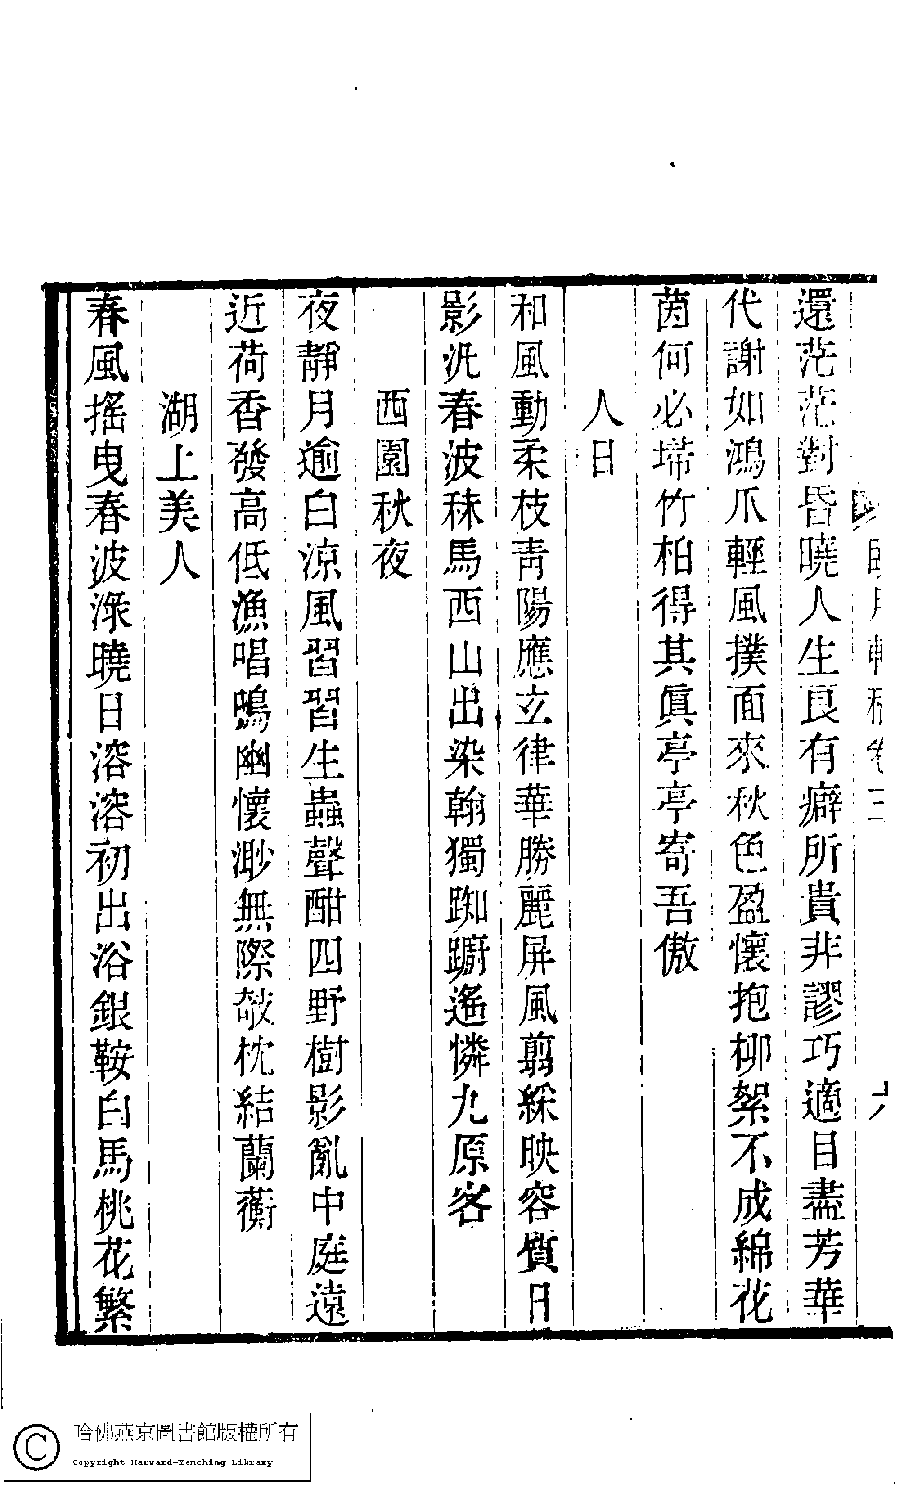 還茫茫對昏曉人生良有癖所貴非謬巧適目盡芳華
代謝如鴻爪輕風撲面來秋色盈懷抱柳絮不成綿花
茵何必埽竹柏得其眞亭亭寄吾傲
人日
和風動柔枝靑陽應玄律華勝麗屏風剪綵映容質日
影汎春波秣馬西山出染翰獨踟躕遙憐九原客
西園秋夜
夜靜月逾白涼風習習生蟲聲酣四野樹影亂中庭遠
近荷香發高低漁唱鳴幽懷渺無際敧枕結蘭蘅
湖上美人
春風搖曳春波淥曉日溶溶初出浴銀鞍白馬桃花繁
哈佛燕京圖書館版權所有
Copyright Harvard-Yenching Library